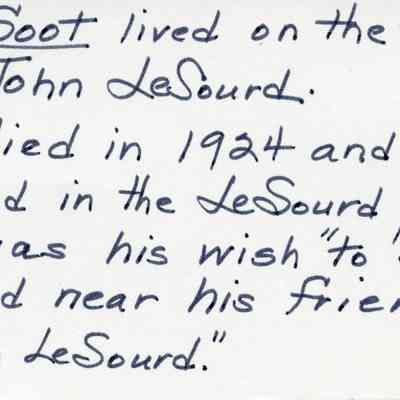 Soot lived on the
John LeSourd.
died in 1924 and
d in the LeSourd
was his wish "to
d near his frien
LeSourd."